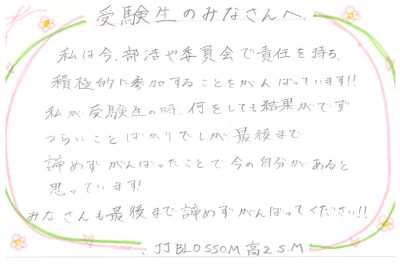 受験生のみなさんへ.
私は今、部活や委員会で責任を持ち、
積極的に参加することをがんばっています!!
私が受験生の時、何をしても結果がでず
つらいことばかりでしが最後まで
諦めずがんばったことで今の自分があると
思っています!
みなさんも最後まで諦めずがんばってください!!
JJ BLOSSOM 高2 S.M